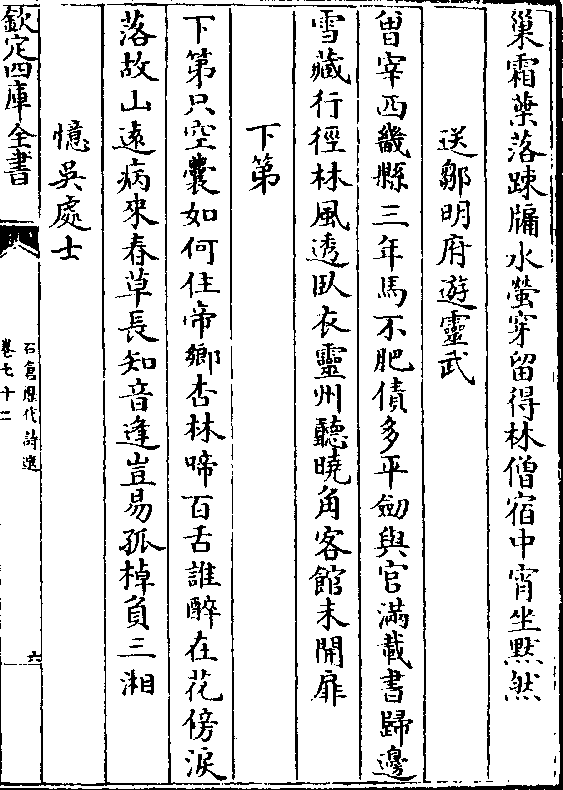 巢霜葉落踈牖水螢穿留得林僧宿中宵坐黙然
送鄒明府遊靈武
曽宰西畿縣三年馬不肥債多平劒與官滿載書歸邊
雪藏行徑林風透臥衣靈州聽曉角客館未開扉
下第
下第只空囊如何住帝鄉杏林啼百舌誰醉在花傍淚
落故山遠病來春草長知音逢豈易孤棹負三湘
憶吳處士
欽定四庫全書
石倉歷代詩選
卷七十二
六